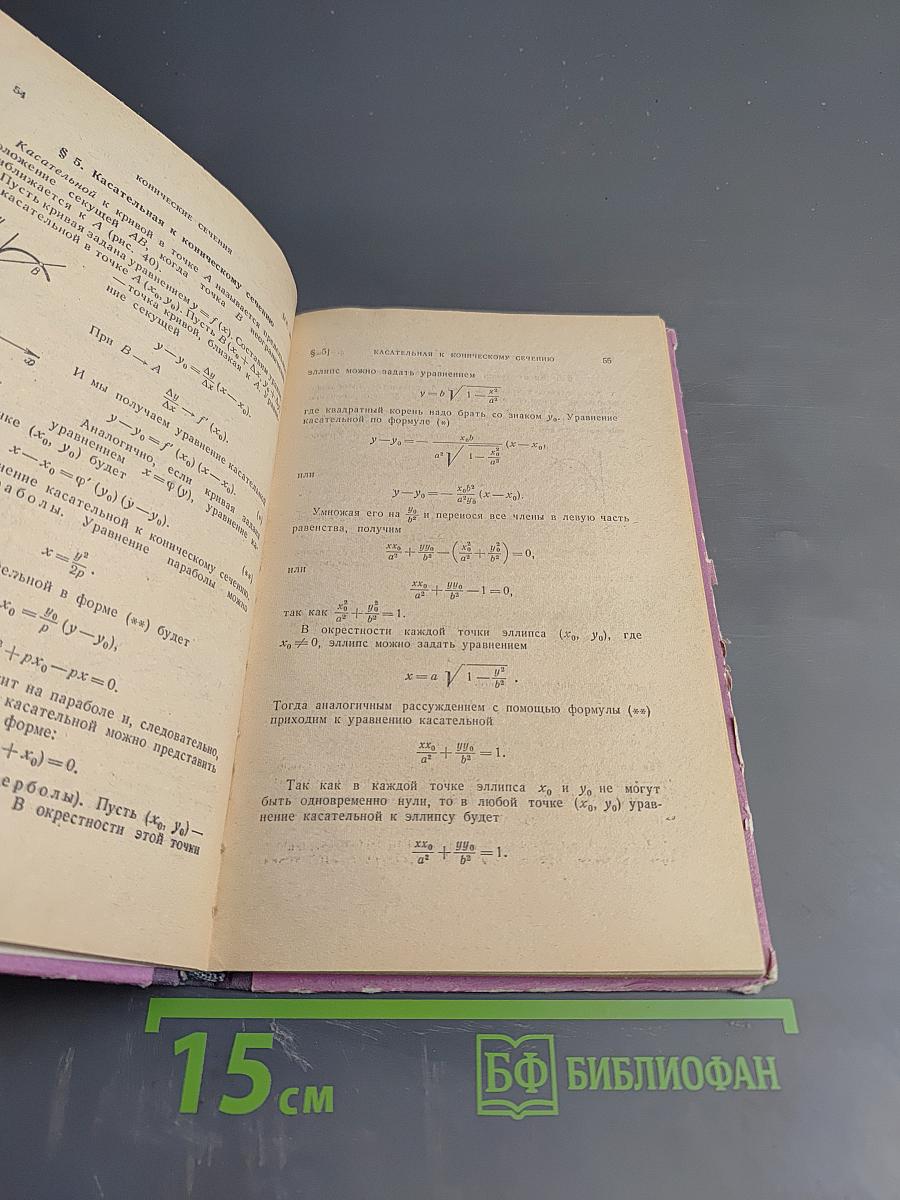 54
КОНИЧЕСКИЕ СЕЧЕНИЯ
§ 5. Касательная к коническому сечению
Касательной к кривой в точке A называется
положение секущей AB, когда точка B
приближается к A (рис. 40).
Пусть кривая задана уравнением y = f (x). Составим
касательной в точке A (x₀, y₀). Пусть B
— точка кривой, близкая к A.
ние секущей
y — y₀ = Δy/Δx (x — x₀).
При B → A
Δy/Δx → f′ (x₀).
И мы получаем уравнение касательной
y — y₀ = f′ (x₀) (x — x₀). (*)
Аналогично, если кривая задана
уравнением x = φ (y), уравнение ка-
чке (x₀, y₀) будет
x — x₀ = φ′ (y₀) (y — y₀). (**)
нение касательной к коническому сечению.
аболы. Уравнение параболы можно
x = y²/2p .
ельной в форме (**) будет
x₀ = y₀/p (y — y₀),
+ px₀ — px = 0.
ит на параболе и, следовательно,
касательной можно представить
форме:
+ x₀) = 0.
ерболы). Пусть (x₀, y₀) —
В окрестности этой точки
B
x
§ 5] КАСАТЕЛЬНАЯ К КОНИЧЕСКОМУ СЕЧЕНИЮ 55
эллипс можно задать уравнением
y = b √(1 — x²/a²),
где квадратный корень надо брать со знаком y₀. Уравнение
касательной по формуле (*)
y — y₀ = — x₀b / (a² √(1 — x₀²/a²)) (x — x₀),
или
y — y₀ = — x₀b²/a²y₀ (x — x₀).
Умножая его на y₀/b² и перенося все члены в левую часть
равенства, получим
xx₀/a² + yy₀/b² — (x₀²/a² + y₀²/b²) = 0,
или
xx₀/a² + yy₀/b² — 1 = 0,
так как x₀²/a² + y₀²/b² = 1.
В окрестности каждой точки эллипса (x₀, y₀), где
x₀ ≠ 0, эллипс можно задать уравнением
x = a √(1 — y²/b²) .
Тогда аналогичным рассуждением с помощью формулы (**)
приходим к уравнению касательной
xx₀/a² + yy₀/b² = 1.
Так как в каждой точке эллипса x₀ и y₀ не могут
быть одновременно нули, то в любой точке (x₀, y₀) урав-
нение касательной к эллипсу будет
xx₀/a² + yy₀/b² = 1.
15 см
БФ БИБЛИОФАН